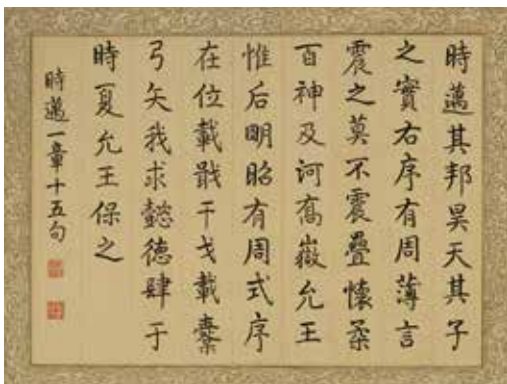 時邁其邦昊天其子
之實右序有周薄言
震之莫不震疊懷柔
百神及河喬嶽允王
惟后明昭有周式序
在位載戢干戈載櫜
弓矢我求懿德肆于
時夏允王保之
時邁一章十五句